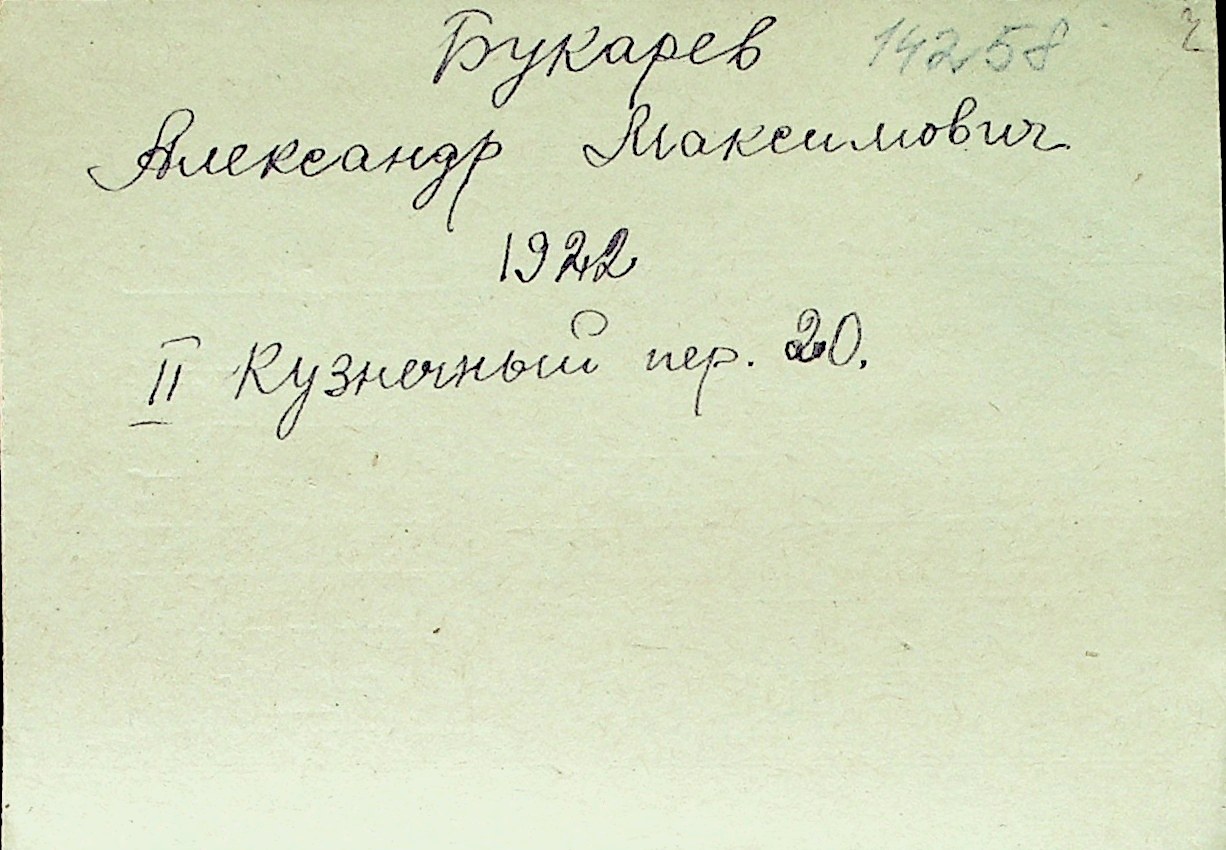 Букарев 14258
Александр Максимович
1922
II Кузнечный пер. 20.